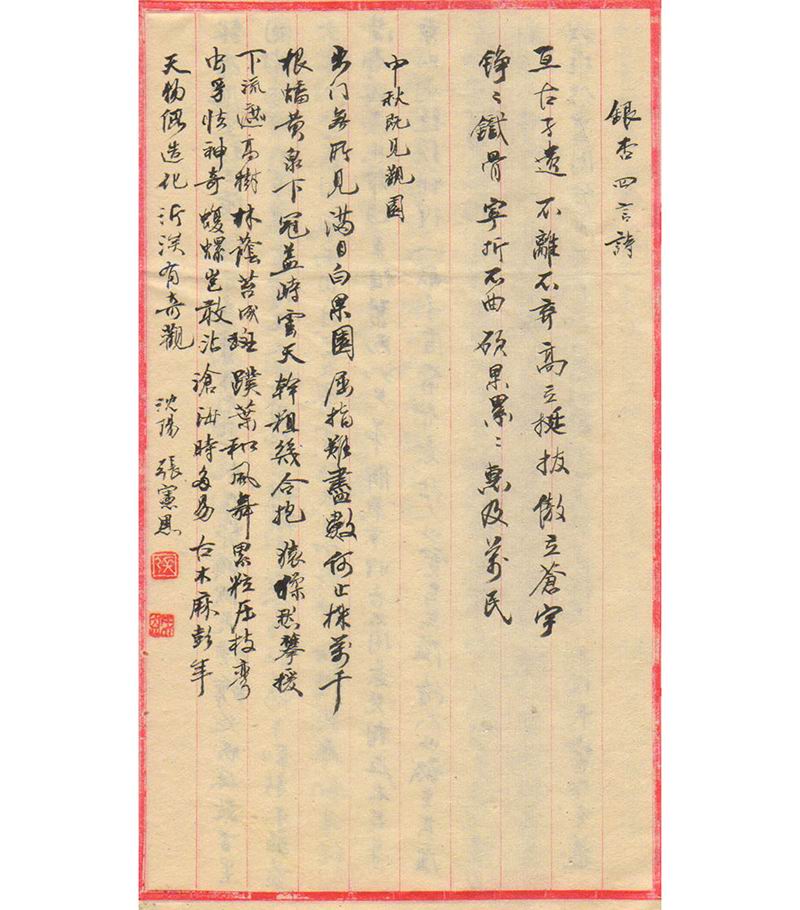 銀杏四言詩
亙古孑遺 不離不弃 高立挺拔 傲立蒼宇
錚〻鐵骨 寧折不曲 碩果累〻 惠及萬民
中秋既見觀園
出门無所見 满目白果園 屈指難盡數 何止株萬千
根蟠黄泉下 冠蓋峙雲天 幹粗幾合抱 猿猱愁攀援
下流遮高樹 林蔭苔成斑 蹼葉和風舞 累粒压枝彎
怯神奇 豈敢沾 滄海時多易 古木 彭年
天物假造化 沂 有奇觀 沈陽 張憲恩